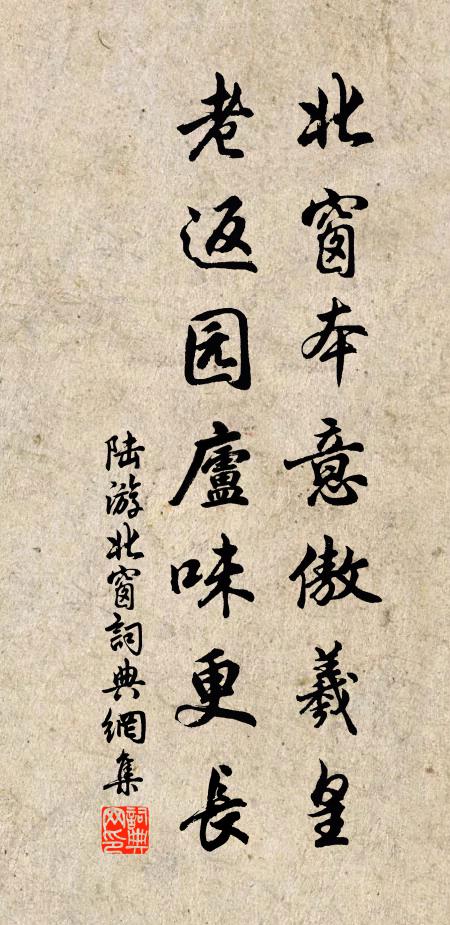 北窗本意傲羲皇
老返园廬味更長
陆游北窗詞典網集
詞典網印